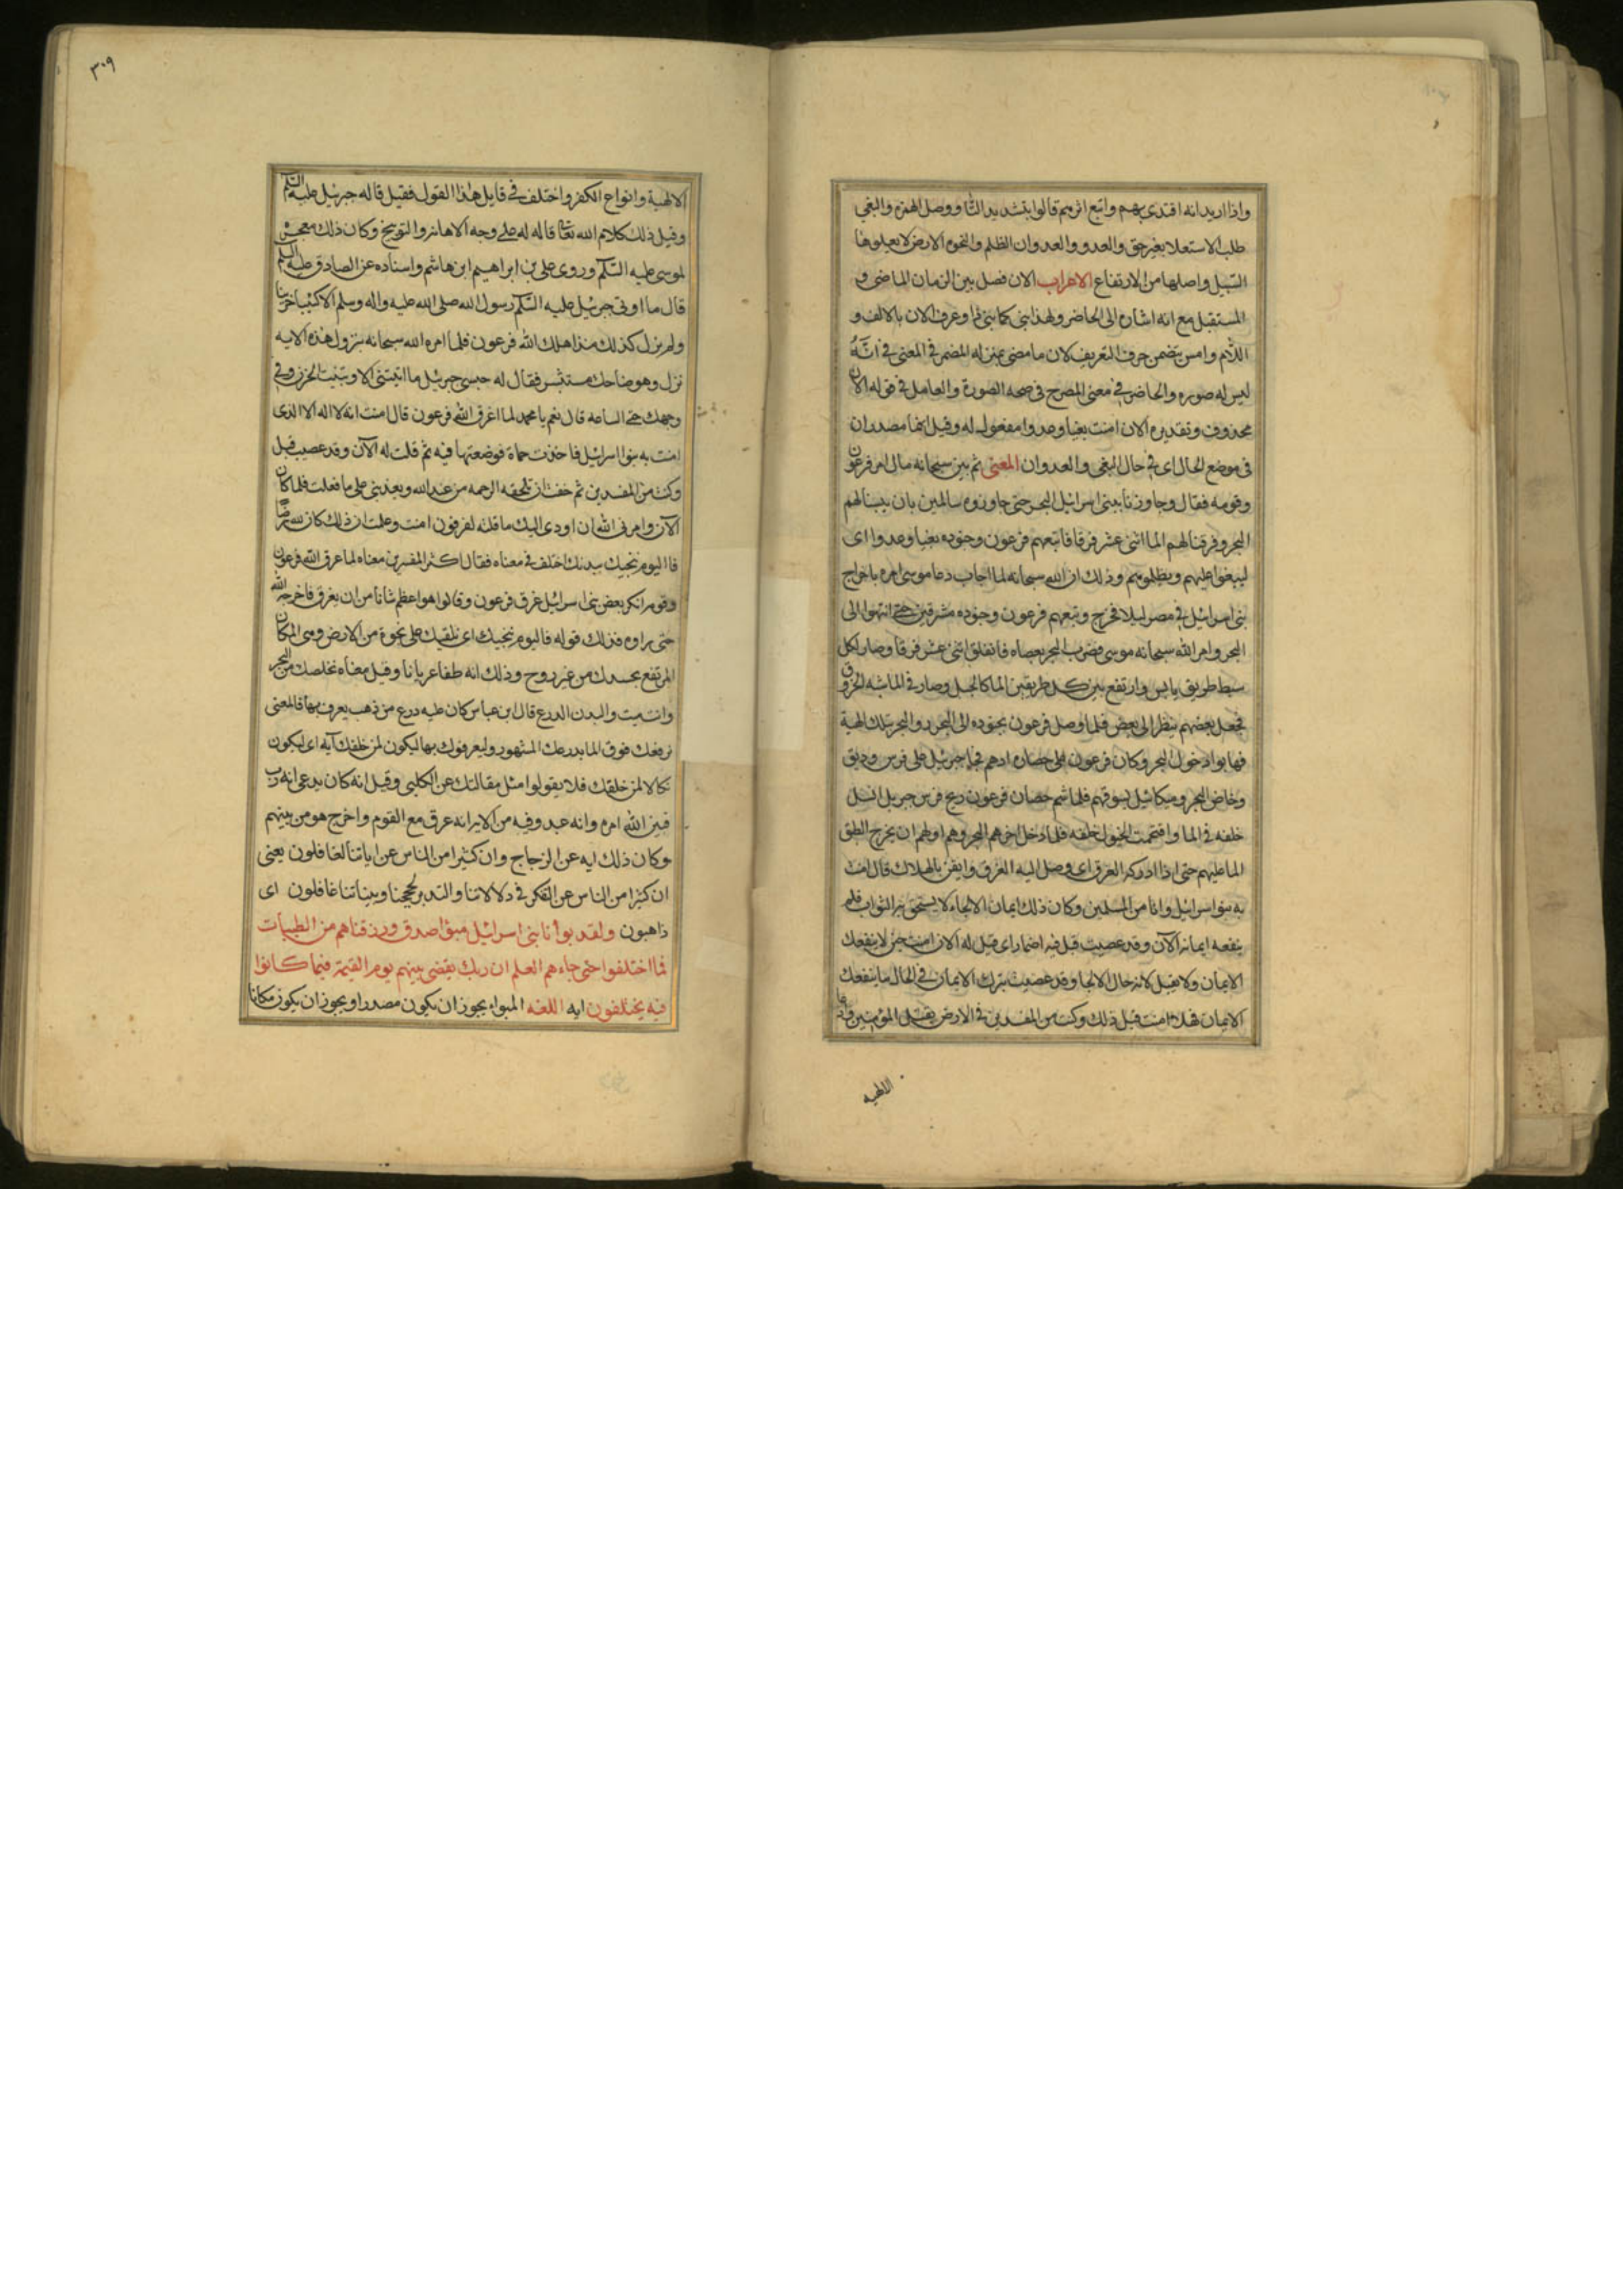 واذا اريد انه اقتدى بهم واتبع اثرهم قالوا بتشديد التا ووصل الهمزه والبغي
طلب الاستعلا بغير حق والعدو والعدوان الظلم والنجوه الارض لا يعلوها
السيل واصلها من الارتفاع الاعراب الان فصل بين الزمان الماضى و
المستقبل مع انه اشاره الى الحاضر ولهذا بنى كما بنى ذا وعرف الان بالالف و
اللام وامس بتضمن حرف التعريف لان ما مضى بمنزله المضمر فى المعنى فى انه
ليس له صوره والحاضر فى معنى المصرح فى صحه الصورة والعامل فى قوله الان
محذوف وتقديره الان امنت بغيا وعدوا مفعول له وقيل انهما مصدران
فى موضع الحال اى فى حال البغى والعدوان المعنى ثم بين سبحانه مال امر فرعون
وقومه فقال وجاوزنا ببنى اسرائيل البحر حتى جاوزوه سالمين بان يبسنا لهم
البحر وفرقنا لهم الما اثنى عشر فرقا فاتبعهم فرعون وجنوده بغيا وعدوا اى
ليبغوا عليهم ويظلموهم وذلك ان الله سبحانه لما اجاب دعا موسى امره باخراج
بنى اسرائيل فى مصر ليلا فخرج وتبعهم فرعون وجنوده مشرقين حتى انتهوا الى
البحر وامر الله سبحانه موسى فضرب البحر بعصاه فانفلق اثنى عشر فرقا وصار لكل
سبط طريق يابس وارتفع بين كل طريقين الما كالجبل وصار فى الما شبه الخروق
فجعل بعضهم ينظر الى بعض فلما وصل فرعون بجنوده الى البحر وراوا البحر بتلك الهية
فهابوا دخول البحر وكان فرعون على حصان ادهم فجا جبرئيل على فرس وديق
وخاض البحر وميكائيل يسوقهم فلما شم حصان فرعون ريح فرس جبريل انسل
خلفه فى الما واقتحمت الخيول خلفه فلما دخل اخرهم البحر وهم اولهم ان يخرج انطبق
الما عليهم حتى اذا ادركه الغرق اى وصل اليه الغرق وايقن بالهلاك قال امنت
به بنوا اسرائيل وانا من المسلمين وكان ذلك ايمان الالجاء لا يستحق به الثواب فلم
ينفعه ايمانه الآن وقد عصيت قبل فيه اضمار اى قيل له الان امنت حين لا ينفعك
الايمان ولا يقبل لانه حال الالجا وقد عصيت بترك الايمان فى الحال ما ينفعك
الايمان فهلا امنت قبل ذلك وكنت من المفسدين فى الارض بقتل المؤمنين وادعا
الالهيه
٣٠٩
الالهية وانواع الكفر واختلف فى قايل هذا القول فقيل قاله جبرئيل عليه السلم
وقيل ذلك كلام الله تعالى قاله له على وجه الاهانه والتوبيخ وكان ذلك معجزه
لموسى عليه السلم وروى على بن ابراهيم ابن هاشم واسناده عن الصادق عليه السلم
قال ما اوتى جبرئيل عليه السلم رسول الله صلى الله عليه واله وسلم الا كئيبا حزينا
ولم يزل كذلك منذ اهلك الله فرعون فلما امره الله سبحانه بنزول هذه الايه
نزل وهو ضاحك مستبشر فقال له حبيبى جبرئيل ما اتيتنى الا وتبينت الحزن فى
وجهك حتى الساعه قال نعم يا محمد لما اغرق الله فرعون قال امنت انه لا اله الا الذى
امنت به بنوا اسرائيل فاخذت حماة فوضعتها فيه ثم قلت له الآن وقد عصيت قبل
وكنت من المفسدين ثم خفت ان تلحقه الرحمه من عند الله ويعذبنى على ما فعلت فلما كان
الآن وامرنى الله ان اودى اليك ما قلته لفرعون امنت وعلمت ان ذلك كان لله رضا
فااليوم ننجيك ببدنك اختلف فى معناه فقال اكثر المفسرين معناه لما غرق الله فرعون
وقومه انكر بعض بنى اسرائيل غرق فرعون وقالوا هو اعظم شانا من ان يغرق فاخرجه الله
حتى راوه فذلك قوله فاليوم ننجيك اى نلقيك على نجوة من الارض وهى المكان
المرتفع بجسدك من غير روح وذلك انه طفا عريانا وقيل معناه نخلصك من البحر
وانت ميت والبدن الدرع قال ابن عباس كان عليه درع من ذهب يعرف بها فالمعنى
نرفعك فوق الما بدرعك المشهور وليعرفوك بها ليكون لمن خلفك آيه اى ليكون
نكالا لمن خلفك فلا يقولوا مثل مقالتك عن الكلبى وقيل انه كان يدعى انه رب
فبين الله امره وانه عبد وفيه من الايه انه غرق مع القوم واخرج هو من بينهم
وكان ذلك ايه عن الزجاج وان كثيرا من الناس عن اياتنا لغافلون يعنى
ان كثيرا من الناس عن التفكر فى دلالاتنا والتدبر لحججنا وبيناتنا غافلون اى
ذاهبون ولقد بوأنا بنى اسرائيل مبوا صدق ورزقناهم من الطيبات
فما اختلفوا حتى جاءهم العلم ان ربك يقضى بينهم يوم القيمة فيما كانوا
فيه يختلفون ايه اللغه المبواء يجوز ان يكون مصدرا ويجوز ان يكون مكانا